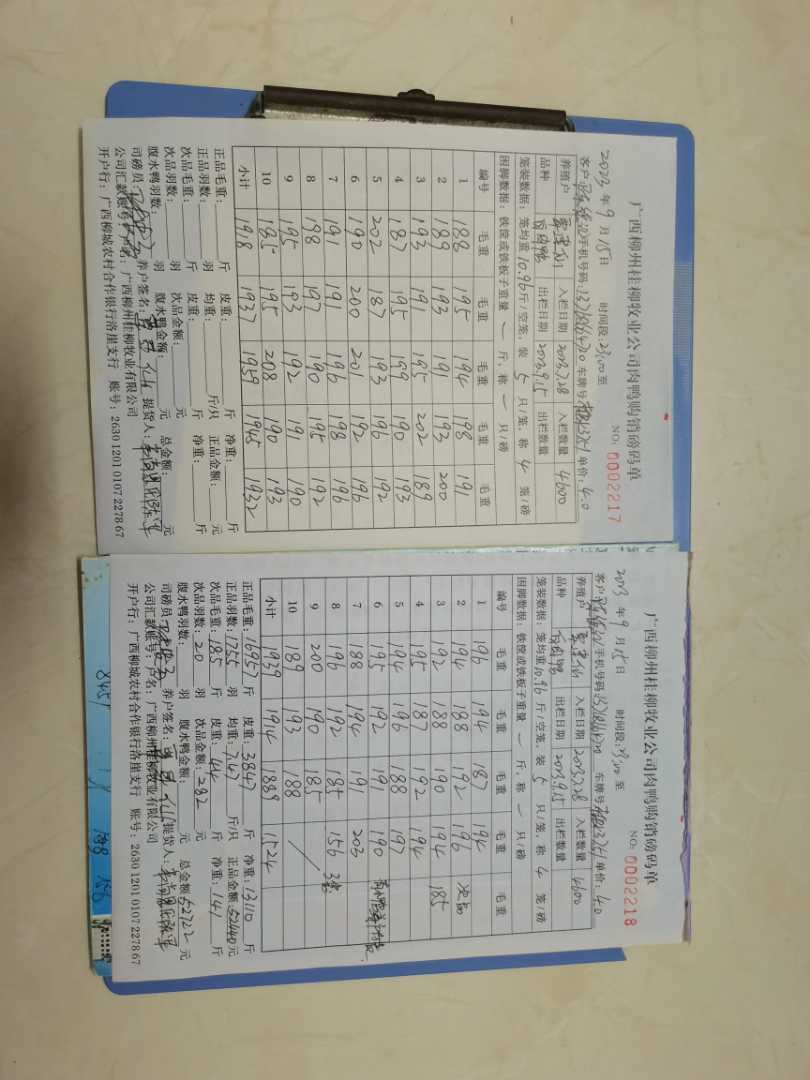 广西柳州桂柳牧业公司肉鸭购销磅码单
NO: 0002217
2023 年 9 月 15 日 时间段: 23:00 至
客户: 手机号码: 车牌号: 单价: 4.0
养殖户 入栏日期 2023.7.28 入栏数量 4600
品种 出栏日期 2023.9.15 出栏数量
笼装数据: 笼均重 10.96 斤/空笼, 装 5 只/笼, 称 4 笼/磅
困脚数据: 铁筐或铁板子重量 — 斤, 称 — 只/磅
编号 毛重 毛重 毛重 毛重 毛重
1 188 195 194 198 191
2 189 193 191 193 200
3 193 191 195 202 189
4 187 195 199 190 193
5 202 187 193 196 192
6 190 200 201 192 196
7 191 191 196 198 196
8 198 197 190 195 192
9 195 193 192 191 190
10 185 195 208 190 193
小计 1918 1937 1959 1945 1932
正品毛重: 斤 皮重: 斤 净重: 斤
正品羽数: 羽 均重: 斤/只 正品金额: 元
次品毛重: 斤 皮重: 斤 净重: 斤
次品羽数: 羽 次品金额: 元
腹水鸭羽数: 羽 腹水鸭金额: 元 总金额: 元
司磅员: 养户签名: 提货人:
公司汇款账号: 户名: 广西柳州桂柳牧业有限公司
开户行: 广西柳城农村合作银行洛崖支行 账号: 2630 1201 0107 2278 67
广西柳州桂柳牧业公司肉鸭购销磅码单
NO: 0002218
2023 年 9 月 15 日 时间段: 至
客户: 手机号码: 车牌号: 单价: 4.0
养殖户 入栏日期 2023.7.28 入栏数量 4600
品种 出栏日期 2023.9.15 出栏数量
笼装数据: 笼均重 10.96 斤/空笼, 装 5 只/笼, 称 4 笼/磅
困脚数据: 铁筐或铁板子重量 — 斤, 称 — 只/磅
编号 毛重 毛重 毛重 毛重 毛重
1 196 194 187 194
2 194 188 192 196 次品
3 192 188 190 194 185
4 195 187 192 194
5 194 196 188 197
6 195 192 191 190
7 188 194 191 203
8 196 192 185 156 3笼
9 200 190 185
10 189 193 188
小计 1939 1914 1889 1524
正品毛重: 16957 斤 皮重: 3847 斤 净重: 13110 斤
正品羽数: 1755 羽 均重: 7.47 斤/只 正品金额: 52440 元
次品毛重: 185 斤 皮重: 44 斤 净重: 141 斤
次品羽数: 20 羽 次品金额: 282 元
腹水鸭羽数: 羽 腹水鸭金额: 元 总金额: 52722 元
司磅员: 养户签名: 提货人:
公司汇款账号: 户名: 广西柳州桂柳牧业有限公司
开户行: 广西柳城农村合作银行洛崖支行 账号: 2630 1201 0107 2278 67